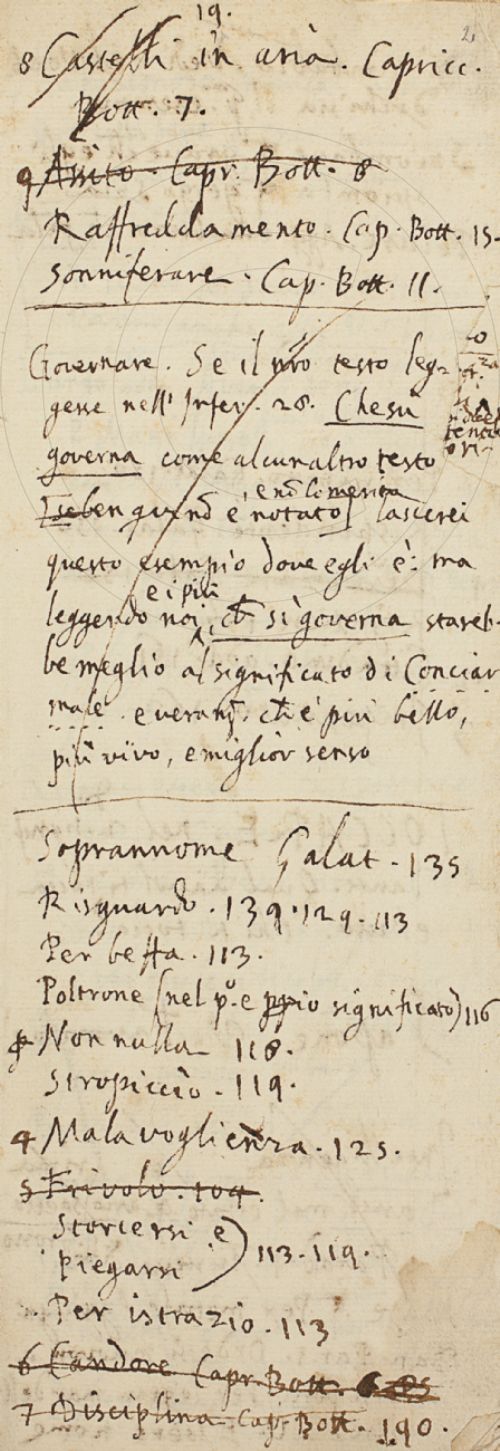 19.
2.
8 Castelli in aria. Capricc.
Bott. 7.
9 Assito. Capr. Bott. 8
Raffreddamento. Cap. Bott. 15.
Sonniferare. Cap. Bott. 11.
Governare. Se il nr̃o testo leg-
gesse nell' Infer. 28. Che si
governa come alcun altro testo
[sebben qui nõ è notato] lascerei
e nõ lo merita
questo esempio dove egli è: ma
leggendo noi, ch̃ si governa stareb-
e i più
be meglio al significato di Conciar
male. e veram̃. ch̃ è più bello,
più vivo, e miglior senso
Soprannome Galat. 135
Risguardo. 139. 129. 113
Per beffa. 113.
Poltrone (nel p.º e ppio significato) 116
Non nulla 118.
Stropiccio. 119.
4 Malavoglienza. 125.
5 Frivolo. 104.
Storcersi e
piegarsi) 113. 119.
Per istrazio. 113
6 Candore Capr. Bott. 6
7 Disciplina Cap. Bott. 190.